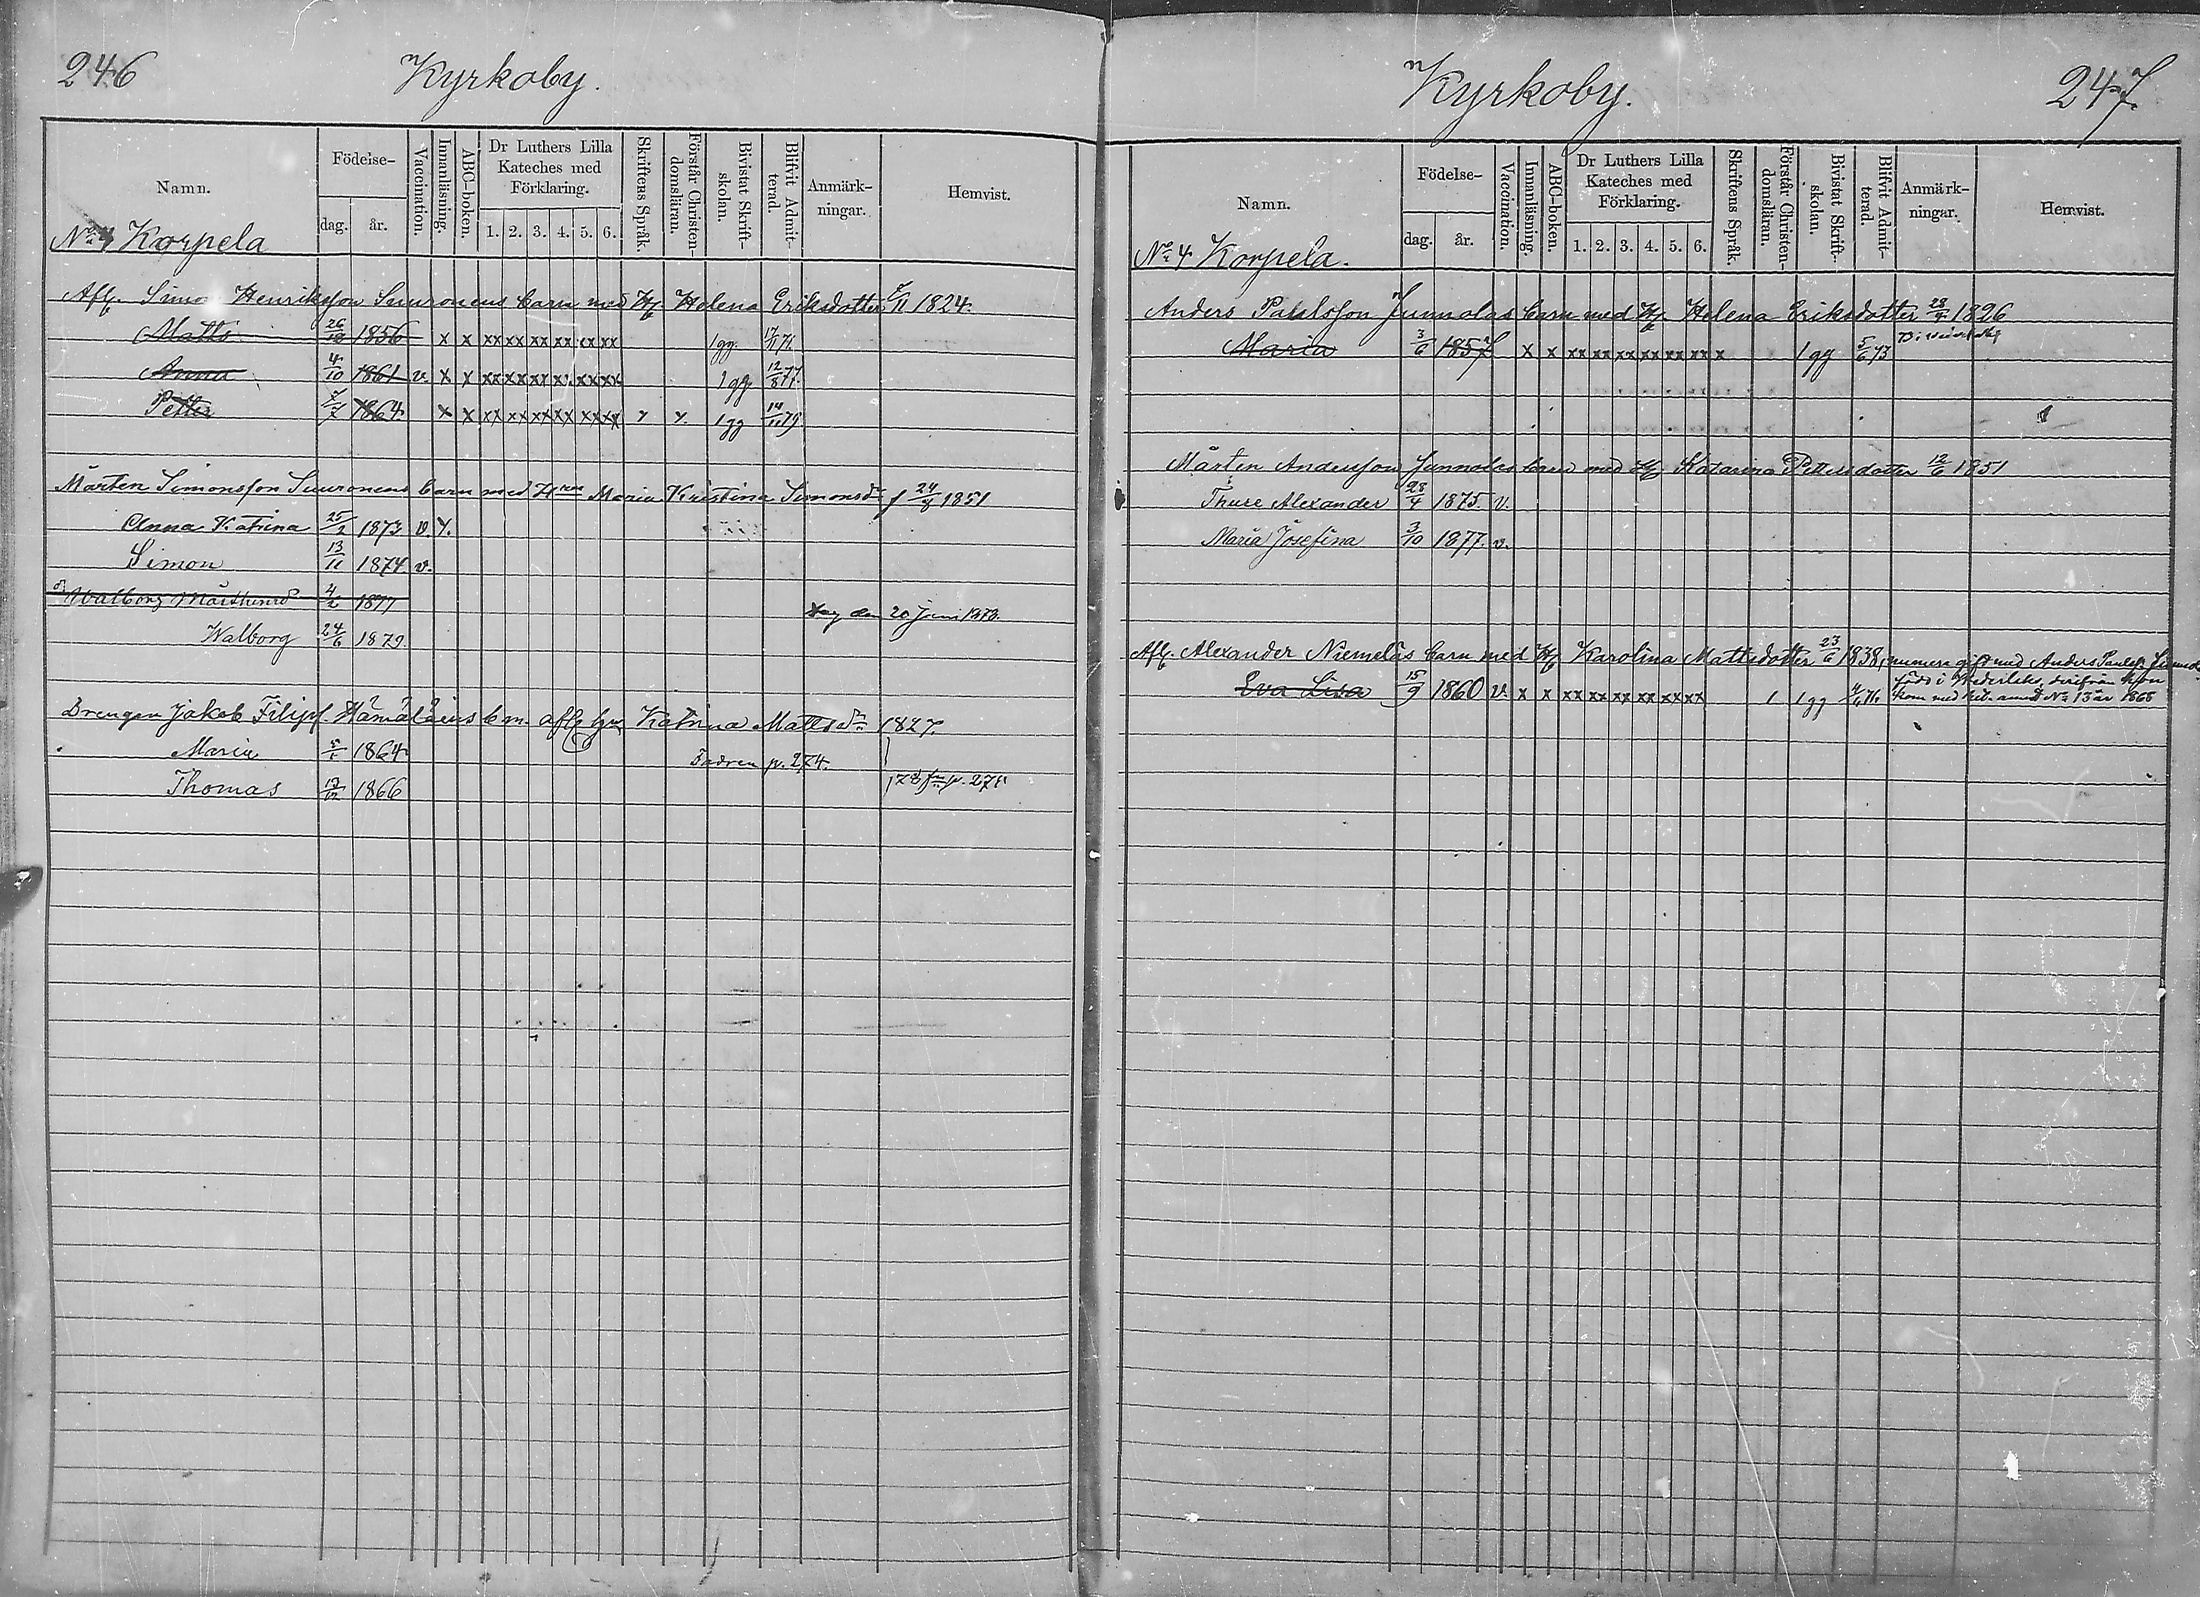 246 Kyrkoby.
Namn. Födelse- Vaccination. Innanläsning. ABC-boken. Dr Luthers Lilla Kateches med Förklaring. Skriftens Språk. Förstår Christen-domsläran. Bivistat Skrift-skolan. Blifvit Admit-terad. Anmärk-ningar. Hemvist.
dag. år. 1. 2. 3. 4. 5. 6.
No 4 Korpela
Afl. Simon Henriksson Suuronens barn med H. Helena Eriksdotter 1824.
Matts 26/10 1856 x x xx xx xx xx xx xx 1 gg. 71.
Anna 4/10 1861 v. x x xx xx xx x. xx xx 1 gg 12/8 77.
Petter 1864 x x xx xx xx xx xx xx 1 gg 14/11 79.
Mårten Simonsson Suuronens barn med H Maria Kristina Simonsdr f 24/8 1851
Anna Katrina 25/2 1873 v. Y.
Simon 13/11 1874 v.
Walborg 4/2 1877
den 20 Juni 1878.
Walborg 24/6 1879.
Drengen Jakob Filipss. Hämäläiens bn. Katrina Mattsdr 1827.
Maria 1864 Fadren p. 274.
Thomas 1866 p. 274.
Kyrkoby. 247.
Namn. Födelse- Vaccination. Innanläsning. ABC-boken. Dr Luthers Lilla Kateches med Förklaring. Skriftens Språk. Förstår Christen-domsläran. Bivistat Skrift-skolan. Blifvit Admit-terad. Anmärk-ningar. Hemvist.
dag. år. 1. 2. 3. 4. 5. 6.
No 4 Korpela.
Anders Paulsson Junnolas barn med H. Helena Eriksdotter 1826
Maria 3/6 1857 x x xx xx xx xx xx xx x 1 gg 5/6 73
Mårten Andersson Junnolas barn med H. Katarina Pettersdotter 12/6 1851
Thure Alexander 28/4 1875. v.
Maria Josefina 3/10 1877. v.
Afl. Alexander Niemeläs barn med H. Karolina Mattsdotter 23/6 1838, numera gift med Anders Paulss.
född i Nederleks, derifrån hon
Eva Lisa 15/9 1860 v. x x xx xx xx xx xx xx 1 1 gg 76. kom med bet. No 13 år 1868